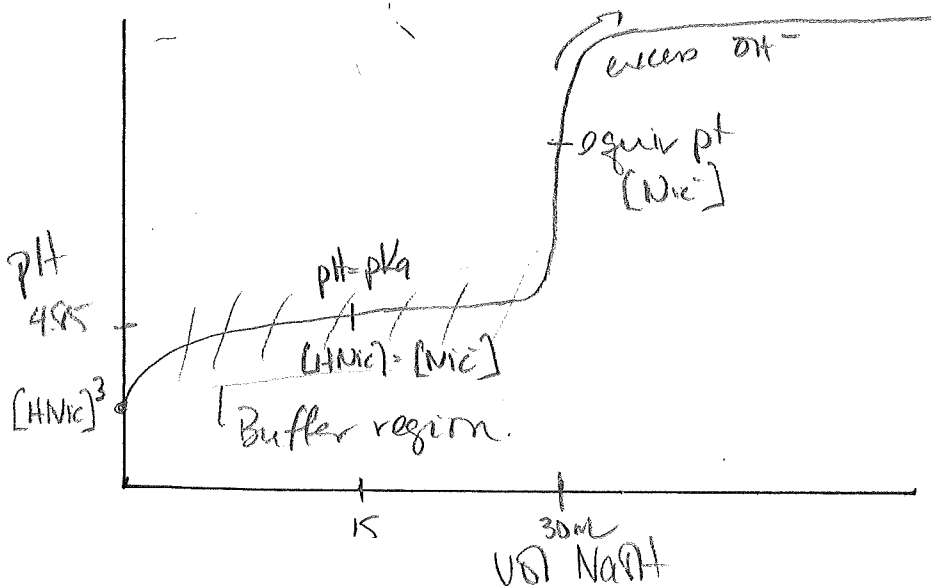 excess OH⁻
equiv pt
[Nic⁻]
pH
pH=pKa
4.85
[HNic]=[Nic⁻]
[HNic] 3
Buffer region.
15
30mL
Vol NaOH